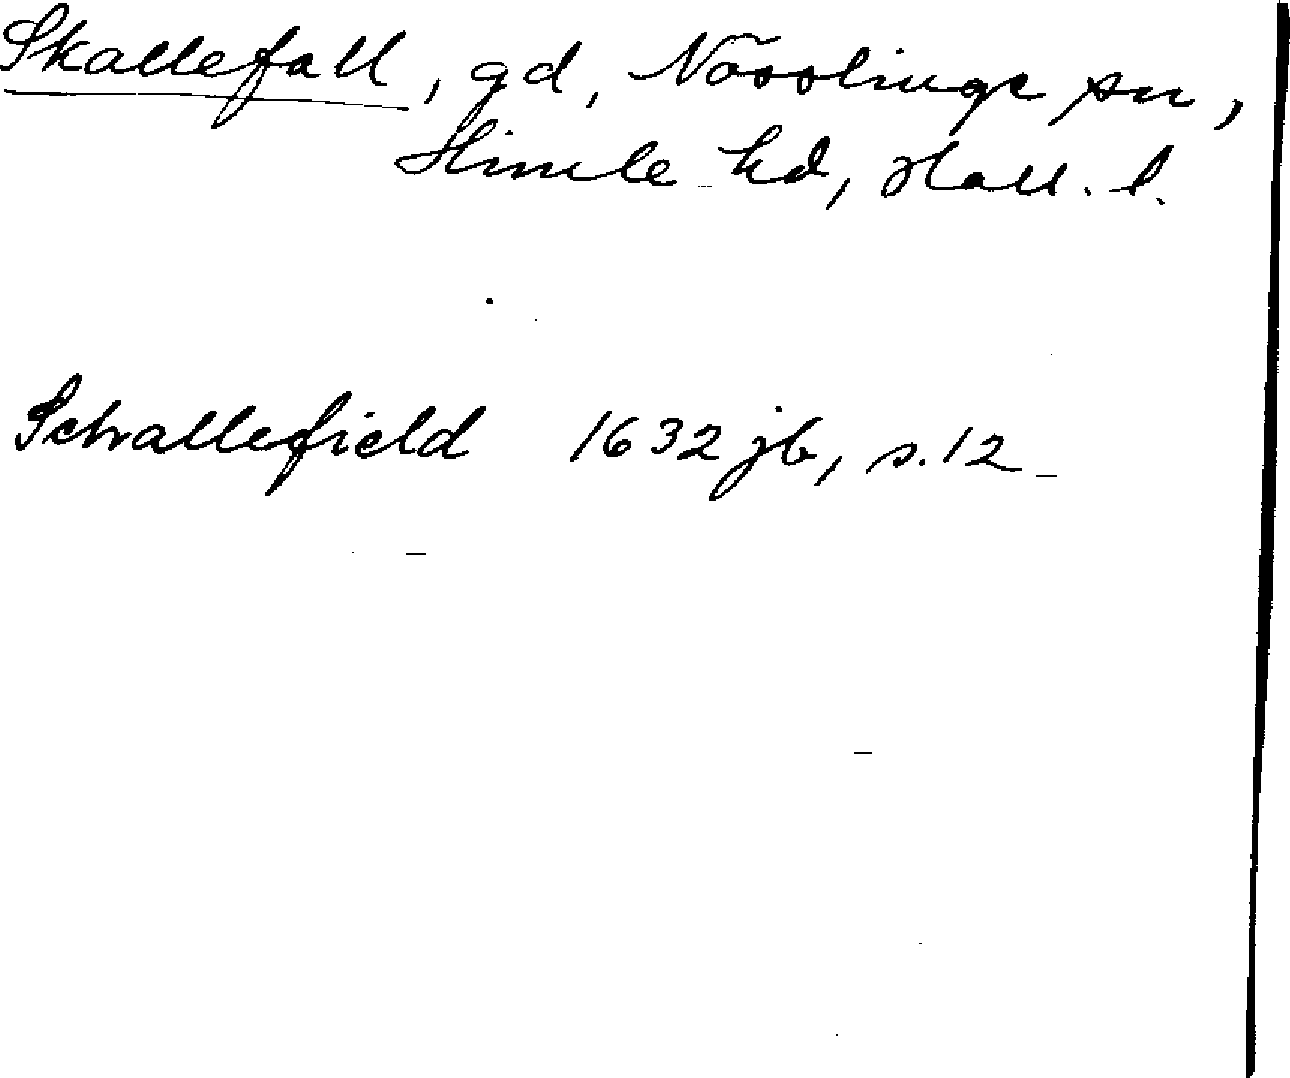 Skallefall, gd, Nösslinge sn,
Himle hd, Hall. l.
Schallefield 1632 jb, s. 12